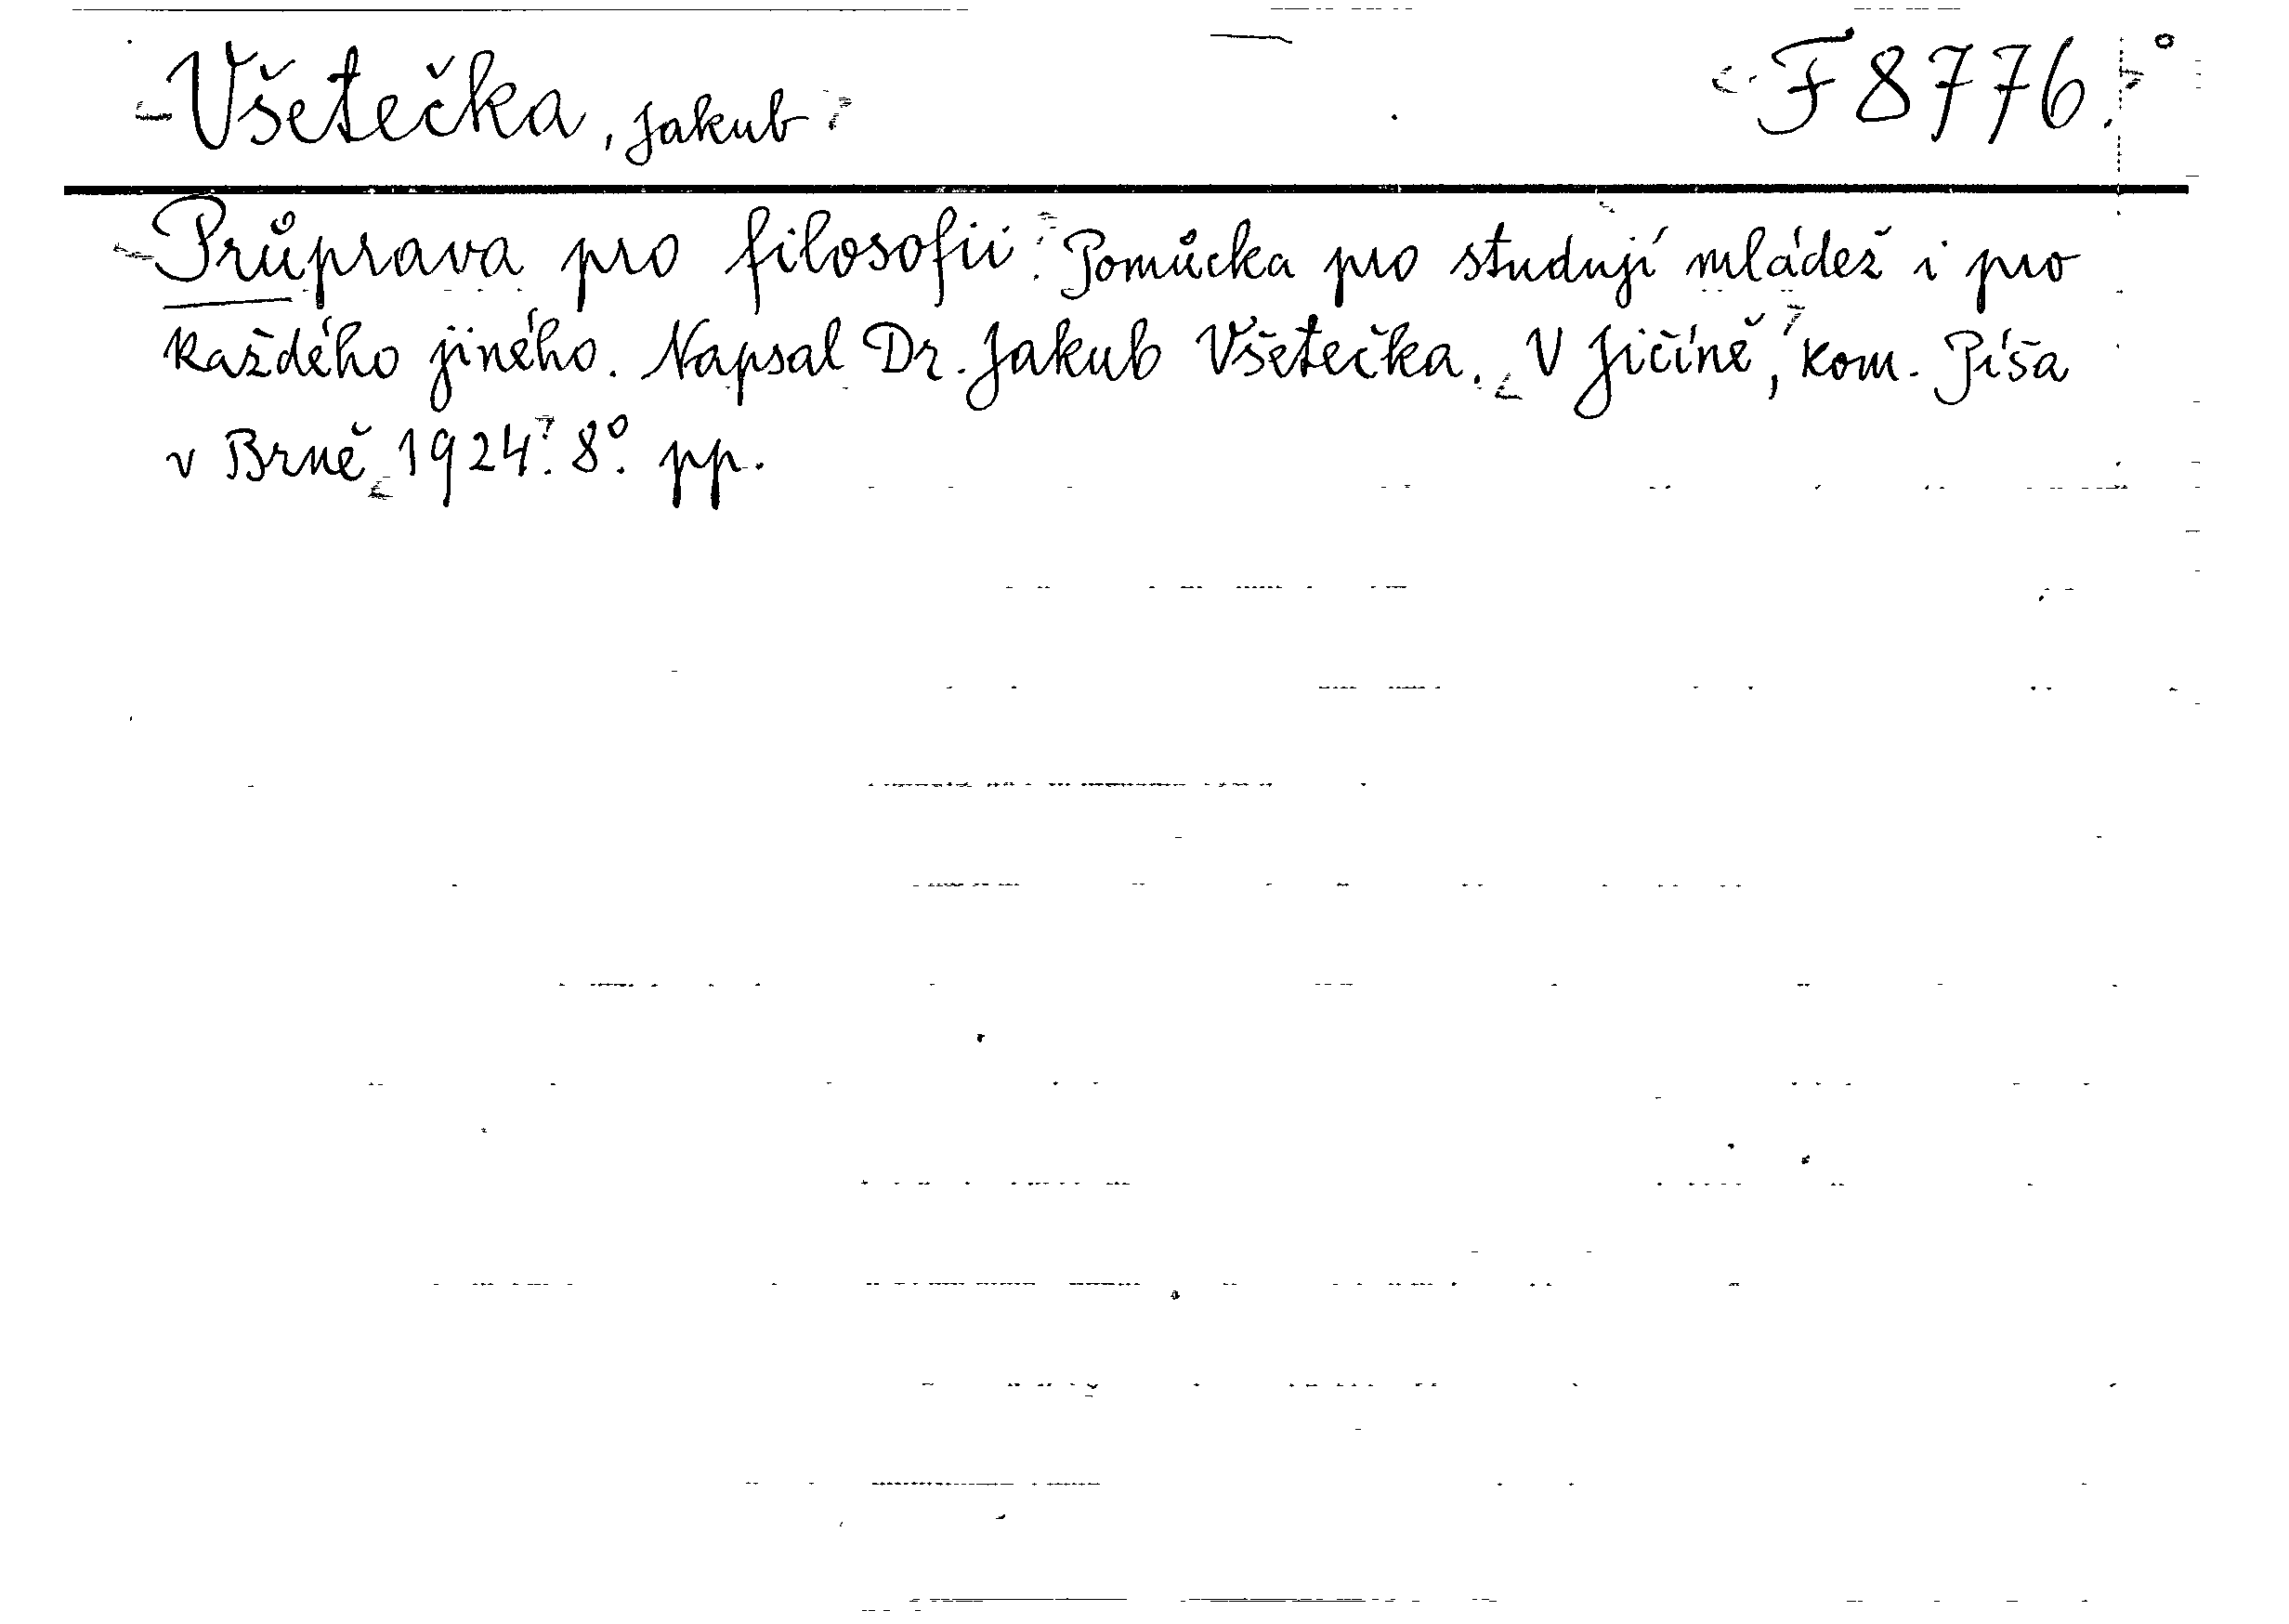 Všetečka, Jakub F 8776.
Průprava pro filosofii. Pomůcka pro studují mládež i pro
každého jiného. Napsal Dr. Jakub Všetečka. V Jičíně, kom. Píša
v Brně 1924. 8°. pp.